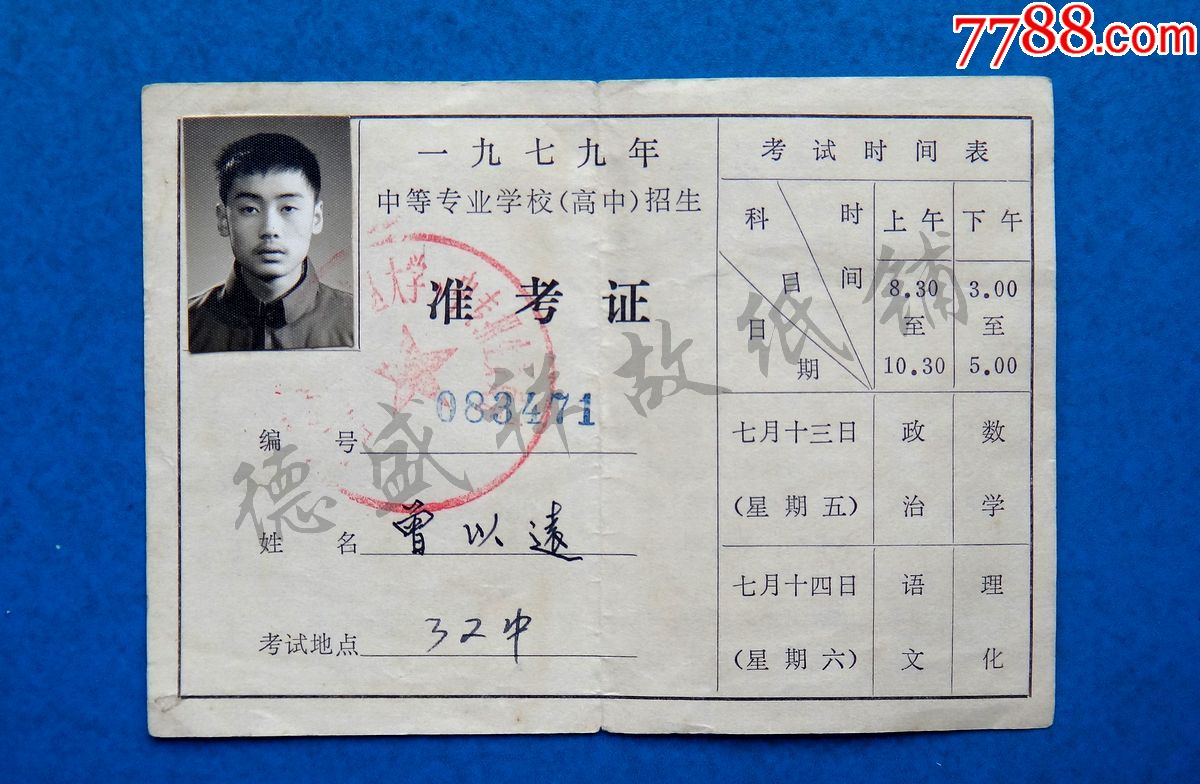 7788.com
一九七九年
中等专业学校(高中)招生
准考证
大学
编号 083471
姓名 曾以遠
考试地点 32中
考试时间表
科目 时间 日期 上午 8.30至10.30 下午 3.00至5.00
七月十三日(星期五) 政治 数学
七月十四日(星期六) 语文 理化
德盛祥故纸铺